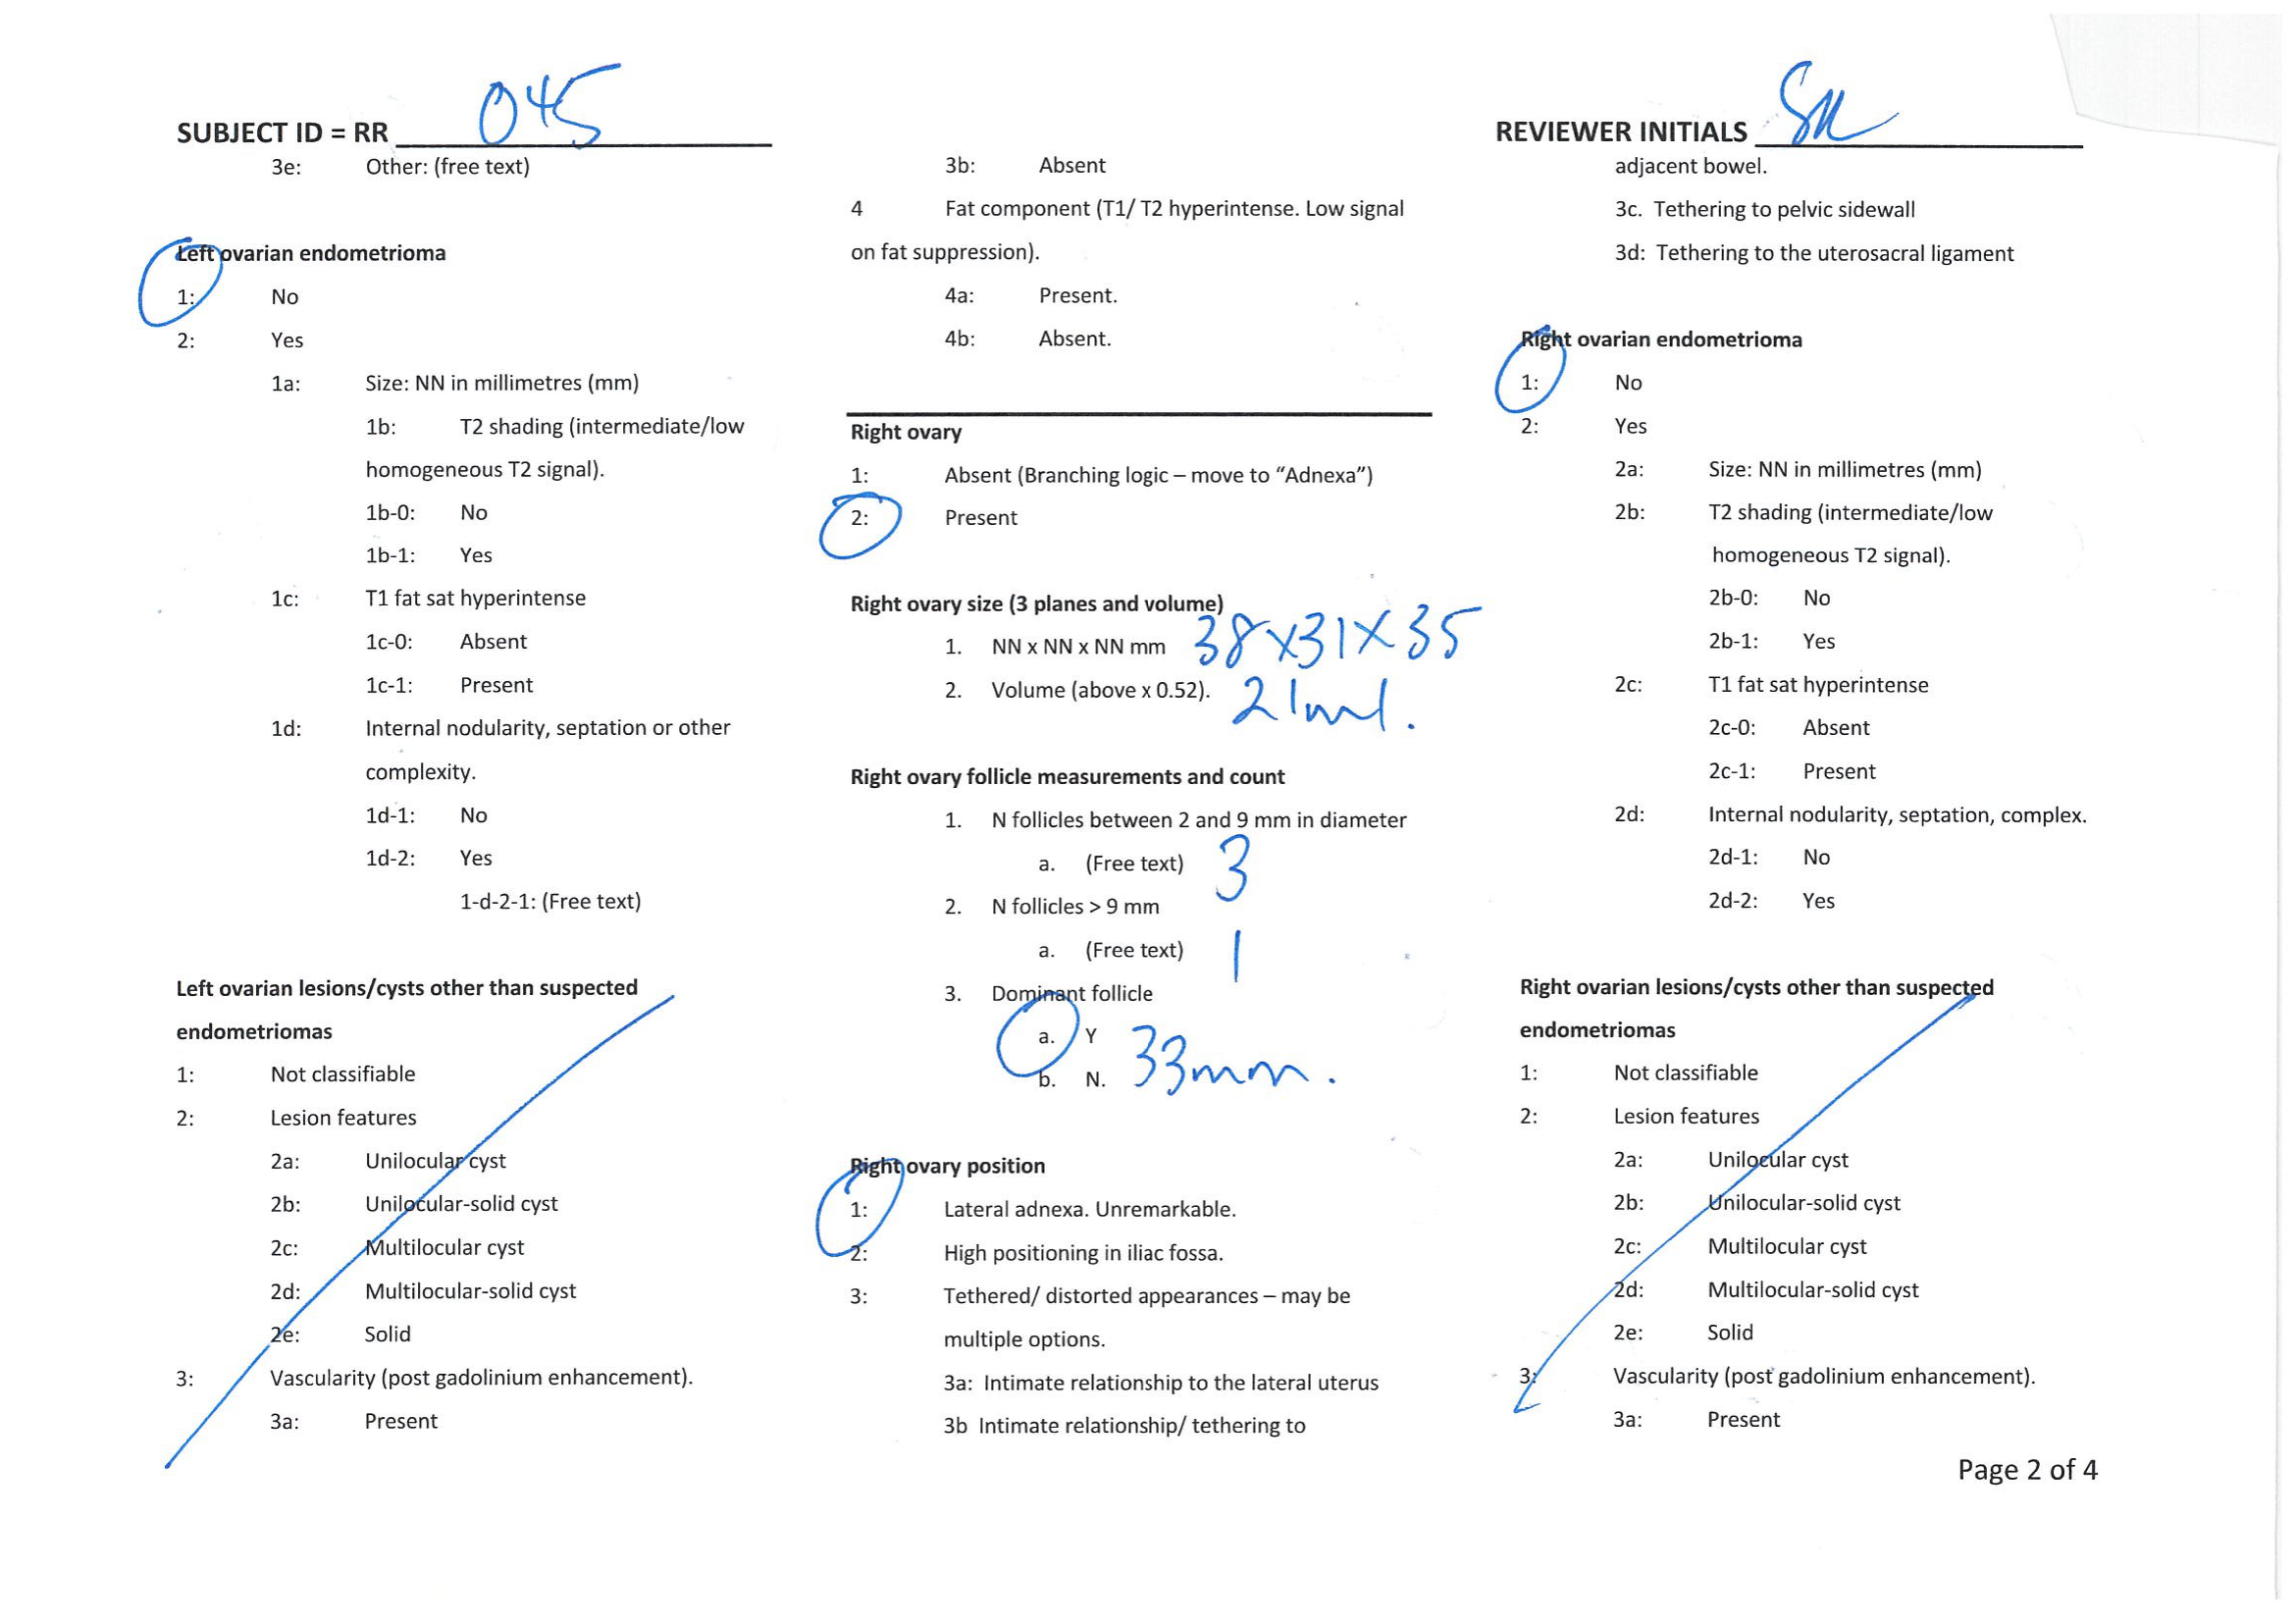 SUBJECT ID = RR 045
REVIEWER INITIALS
3e: Other: (free text)
Left ovarian endometrioma
1: No
2: Yes
1a: Size: NN in millimetres (mm)
1b: T2 shading (intermediate/low
homogeneous T2 signal).
1b-0: No
1b-1: Yes
1c: T1 fat sat hyperintense
1c-0: Absent
1c-1: Present
1d: Internal nodularity, septation or other
complexity.
1d-1: No
1d-2: Yes
1-d-2-1: (Free text)
Left ovarian lesions/cysts other than suspected
endometriomas
1: Not classifiable
2: Lesion features
2a: Unilocular cyst
2b: Unilocular-solid cyst
2c: Multilocular cyst
2d: Multilocular-solid cyst
2e: Solid
3: Vascularity (post gadolinium enhancement).
3a: Present
3b: Absent
4 Fat component (T1/ T2 hyperintense. Low signal
on fat suppression).
4a: Present.
4b: Absent.
Right ovary
1: Absent (Branching logic – move to “Adnexa”)
2: Present
Right ovary size (3 planes and volume)
1. NN x NN x NN mm 38x31x35
2. Volume (above x 0.52). 21ml.
Right ovary follicle measurements and count
1. N follicles between 2 and 9 mm in diameter
a. (Free text) 3
2. N follicles > 9 mm
a. (Free text) 1
3. Dominant follicle
a. Y
b. N. 33mm.
Right ovary position
1: Lateral adnexa. Unremarkable.
2: High positioning in iliac fossa.
3: Tethered/ distorted appearances – may be
multiple options.
3a: Intimate relationship to the lateral uterus
3b Intimate relationship/ tethering to
adjacent bowel.
3c. Tethering to pelvic sidewall
3d: Tethering to the uterosacral ligament
Right ovarian endometrioma
1: No
2: Yes
2a: Size: NN in millimetres (mm)
2b: T2 shading (intermediate/low
homogeneous T2 signal).
2b-0: No
2b-1: Yes
2c: T1 fat sat hyperintense
2c-0: Absent
2c-1: Present
2d: Internal nodularity, septation, complex.
2d-1: No
2d-2: Yes
Right ovarian lesions/cysts other than suspected
endometriomas
1: Not classifiable
2: Lesion features
2a: Unilocular cyst
2b: Unilocular-solid cyst
2c: Multilocular cyst
2d: Multilocular-solid cyst
2e: Solid
3: Vascularity (post gadolinium enhancement).
3a: Present
Page 2 of 4